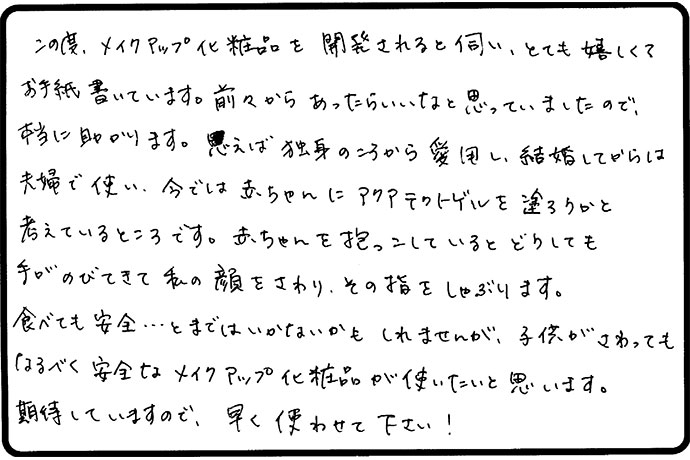 この度、メイクアップ化粧品を開発されると伺い、とても嬉しくて
お手紙書いています。前々からあったらいいなと思っていましたので、
本当に助かります。思えば独身のころから愛用し、結婚してからは
夫婦で使い、今では赤ちゃんにアクアテクトゲルを塗ろうかと
考えているところです。赤ちゃんを抱っこしているとどうしても
手がのびてきて私の顔をさわり、その指をしゃぶります。
食べても安全…とまではいかないかもしれませんが、子供がさわっても
なるべく安全なメイクアップ化粧品が使いたいと思います。
期待していますので、早く使わせて下さい!